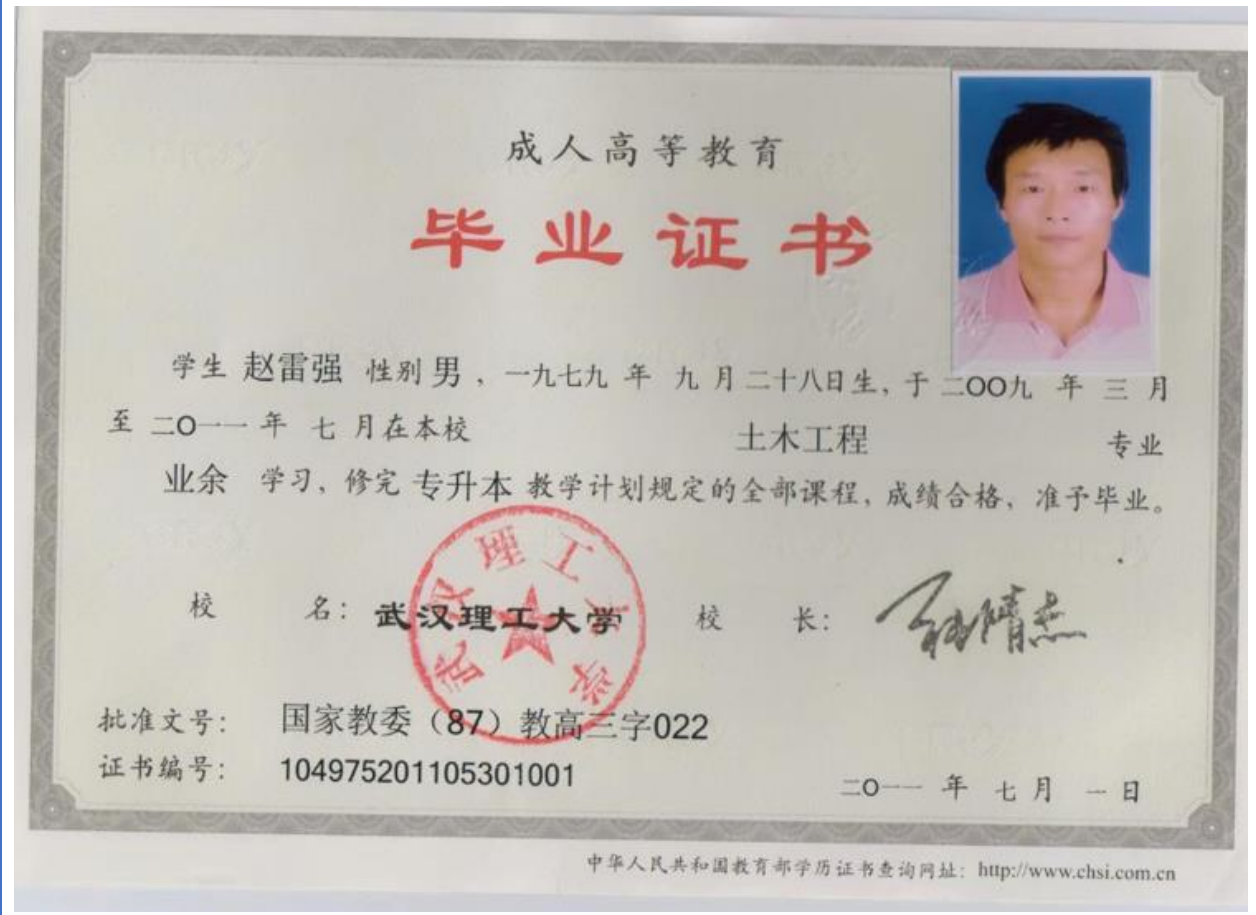 成人高等教育
毕业证书
学生 赵雷强 性别 男 , 一九七九 年 九 月 二十八日生, 于 二OO九 年 三 月
至 二O一一 年 七 月在本校 土木工程 专业
业余 学习, 修完 专升本 教学计划规定的全部课程, 成绩合格, 准予毕业。
武汉理工大学
校 名: 武汉理工大学 校 长:
批准文号: 国家教委（87）教高三字022
证书编号: 104975201105301001
二O一一 年 七 月 一 日
中华人民共和国教育部学历证书查询网址: http://www.chsi.com.cn